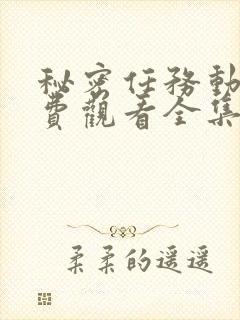 秘密任務動
費觀看全集
柔柔的遥遥